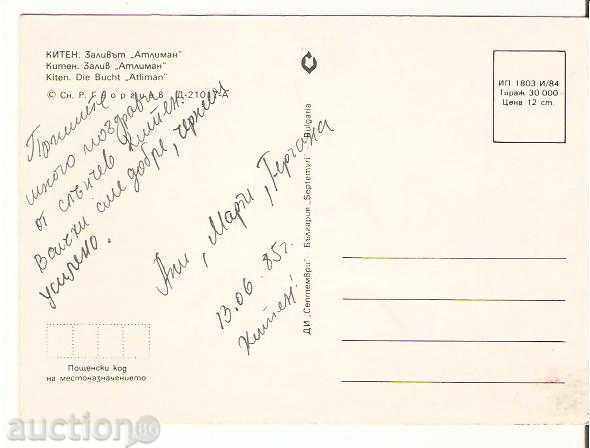 КИТЕН. Заливът „Атлиман"
Китен. Залив „Атлиман"
Kiten. Die Bucht „Atliman"
© Сн. Р. Георгиев Д-2101-А
ИП 1803 И/84
Тираж 30 000
Цена 12 ст.
Приемете
много поздрави
от слънчев Китен.
Всички сме добре, черпим
усилено.
Ани, Марти, Гергана
13.06.85г.
Китен!
ДИ „Септември" България "Septemvri" Bulgaria
Пощенски код
на местоназначението
auction BG